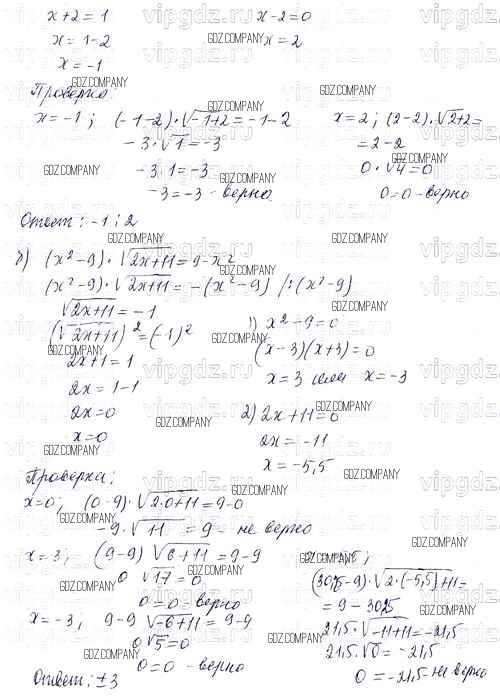 x+2=1
x=1-2
x=-1
x-2=0
x=2
Проверка:
x=-1; (-1-2)·√-1+2=-1-2
-3·√1=-3
-3·1=-3
-3=-3 - верно
x=2; (2-2)·√2+2=
=2-2
0·√4=0
0=0 - верно
Ответ: -1; 2
(x²-9)·√2x+11=9-x²
(x²-9)·√2x+11=-(x²-9) |:(x²-9)
√2x+11=-1
(√2x+11)²=(-1)²
2x+11=1
2x=1-1
2x=0
x=0
1) x²-9=0
(x-3)(x+3)=0
x=3 или x=-3
2) 2x+11=0
2x=-11
x=-5,5
Проверка:
x=0; (0-9)·√2·0+11=9-0
-9·√11=9 - не верно
x=3; (9-9)√6+11=9-9
0 √17=0
0=0 - верно
x=-3; 9-9√-6+11=9-9
0√5=0
0=0 - верно
(30,25-9)·√2·(-5,5)+11=
=9-30,25
21,5·√-11+11=-21,5
21,5·√0=-21,5
0=-21,5 - не верно
Ответ: ±3
vipgdz.ru
GDZ.COMPANY